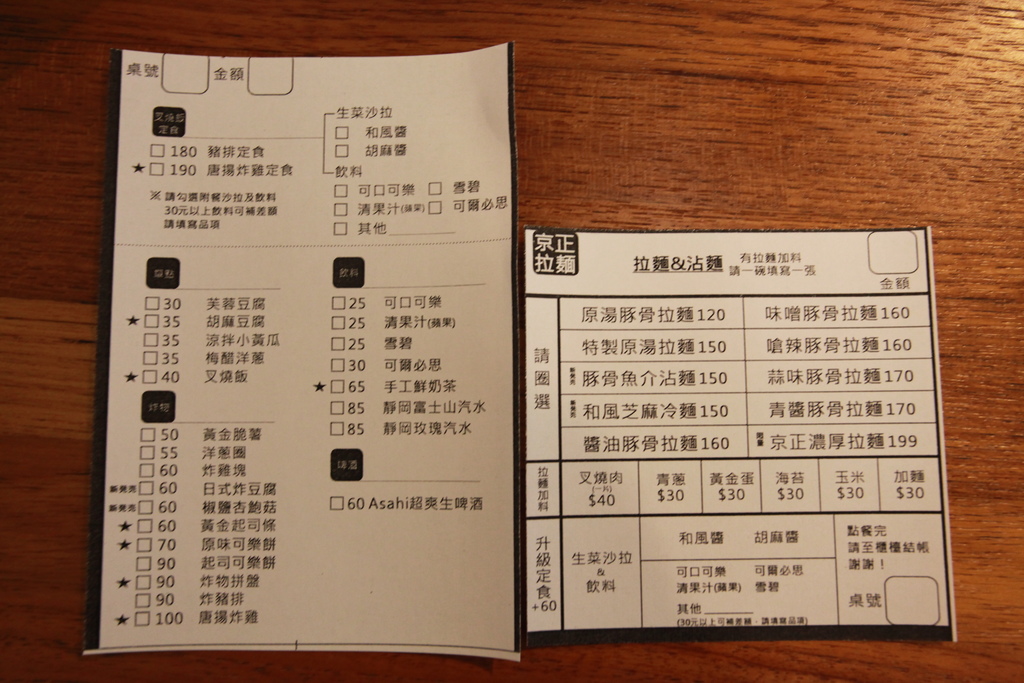 桌號 金額
叉燒飯
定食
180 豬排定食
★ 190 唐揚炸雞定食
※ 請勾選附餐沙拉及飲料
30元以上飲料可補差額
請填寫品項
生菜沙拉
和風醬
胡麻醬
飲料
可口可樂 雪碧
清果汁(蘋果) 可爾必思
其他
單點
30 芙蓉豆腐
★ 35 胡麻豆腐
35 涼拌小黃瓜
35 梅醋洋蔥
★ 40 叉燒飯
炸物
50 黃金脆薯
55 洋蔥圈
60 炸雞塊
新発売 60 日式炸豆腐
新発売 60 椒鹽杏鮑菇
★ 60 黃金起司條
★ 70 原味可樂餅
90 起司可樂餅
★ 90 炸物拼盤
90 炸豬排
★ 100 唐揚炸雞
飲料
25 可口可樂
25 清果汁(蘋果)
25 雪碧
30 可爾必思
★ 65 手工鮮奶茶
85 靜岡富士山汽水
85 靜岡玫瑰汽水
啤酒
60 Asahi超爽生啤酒
京正
拉麵
拉麵&沾麵
有拉麵加料
請一碗填寫一張
金額
請圈選
原湯豚骨拉麵120 味噌豚骨拉麵160
特製原湯拉麵150 嗆辣豚骨拉麵160
新発売 豚骨魚介沾麵150 蒜味豚骨拉麵170
新発売 和風芝麻冷麵150 青醬豚骨拉麵170
醬油豚骨拉麵160 限量 京正濃厚拉麵199
拉麵加料
叉燒肉 青蔥 黃金蛋 海苔 玉米 加麵
(一片)
$40 $30 $30 $30 $30 $30
升級定食
+60
生菜沙拉
&
飲料
和風醬 胡麻醬
可口可樂 可爾必思
清果汁(蘋果) 雪碧
其他
(30元以上可補差額，請填寫品項)
點餐完
請至櫃檯結帳
謝謝！
桌號